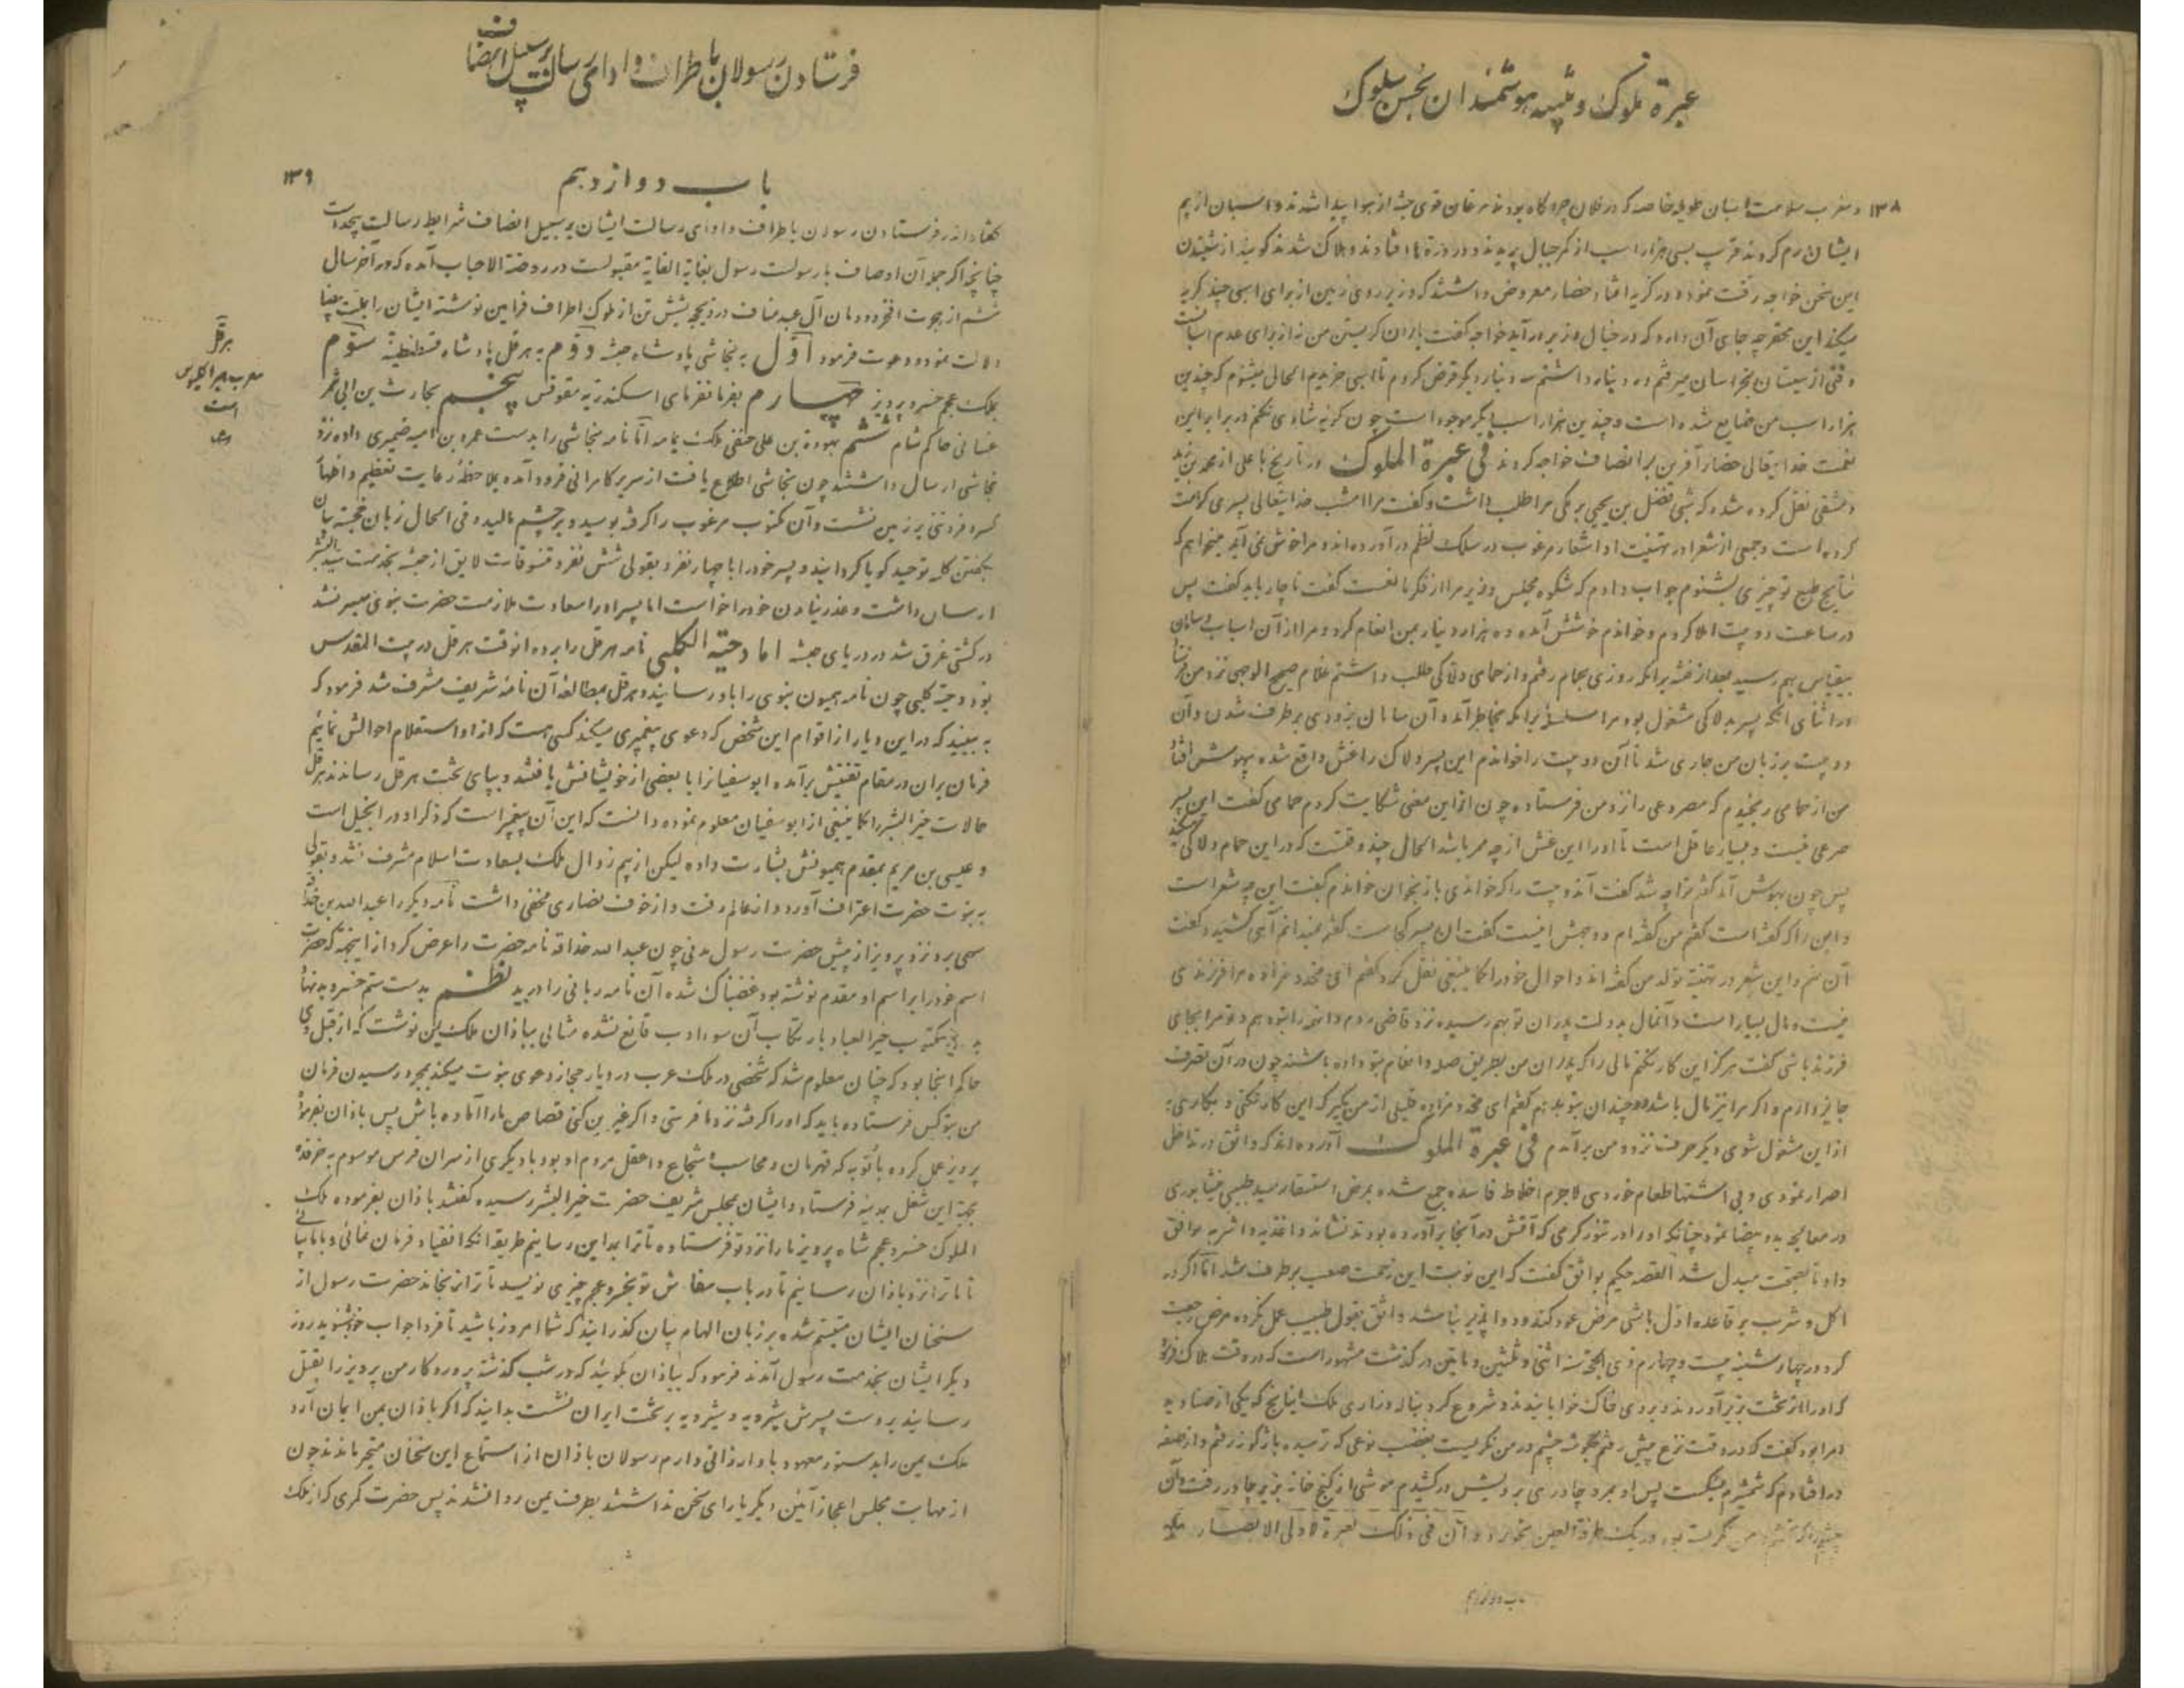 عبرة ملوک و تنبیه هوشمندان بحسن سلوک
۱۳۸
و مقرب سلامت اسبان طویله خاصه که در فلان چراگاه بودند مرغان قوی جثه از هوا پیدا شدند و اسبان از بیم
ایشان رم کردند قریب بسی هزار اسب از کمر جبال پریدند و در دره ها افتادند و هلاک شدند گویند از شنیدن
این سخن خواجه رقت نموده در گریه افتاد حضار معروض داشتند که وزیر روی زمین از برای اسبی چند گریه
میکند این محقر چه جای آن دارد که در خیال وزیر درآید خواجه گفت یاران گریستن من نه از برای عدم اسبانست
وقتی از سیستان بخراسان میرفتم و ده دینار داشتم سه دینار دیگر قرض کردم تا اسبی خریدم الحال میشنوم که چندین
هزار اسب من ضایع شده است و چندین هزار اسب دیگر موجود است چون گریه شادی نکنم در برابر این
نعمت خدایتعالی حضار آفرین بر انصاف خواجه کردند فی عبرة الملوک در تاریخ یافعی از محمد بن یزید
دمشقی نقل کرده شده که شبی فضل بن یحیی برمکی مرا طلب داشت و گفت مرا امشب خدایتعالی پسری کرامت
کرده است و جمعی از شعرا در تهنیت او اشعار مرغوب در سلک نظم در آورده اند و مرا خوش نمی آید میخواهم که
نتایج طبع تو چیزی بشنوم جواب دادم که شکوه مجلس وزیر مرا از فکر مانعست گفت ناچار باید گفت پس
در ساعت دو بیت املا کردم و خواندم خوشش آمده ده هزار دینار بمن انعام کرد و مرا از آن اسباب و سامان
بیقیاس بهم رسید بعد از فترت برامکه روزی بحمام رفتم و از حمامی دلاکی طلب داشتم غلام صبیح الوجهی نزد من فرستاد
در اثنای آنکه پسر بدلاکی مشغول بود مرا سلسله برامکه بخاطر آمد و آن سامان بزودی برطرف شدن و آن
دو بیت بر زبان من جاری شد تا آن دو بیت را خواندم این پسر دلاک را غش واقع شده بیهوش افتاد
من از حمامی رنجیدم که مصروعی را نزد من فرستاده چون از این معنی شکایت کردم حمامی گفت این پسر
صرعی نیست و بسیار عاقل است تا او را این غش از چه ممر باشد الحال چند وقتست که در این حمام دلاکی میکند
پس چون بهوش آمد گفتم ترا چه شد گفت آندو بیت را که خواندی باز بخوان خواندم گفت این چه شعر است
و این را که گفته است گفتم من گفته ام و وجهش اینست گفت آن پسر کجاست گفتم نمیدانم آهی کشید و گفت
آن منم و این شعر در تهنیت تولد من گفته اند و احوال خود را کما ینبغی نقل کرد گفتم ای مخدوم زاده مرا فرزندی
نیست و مال بسیار است و آنمال بدولت پدران تو بهم رسیده نزد قاضی روم و آنچه را بتو دهم و تو مرا بجای
فرزند باشی گفت هرگز این کار نکنم مالی را که پدران من بطریق صله و انعام بتو داده باشند چون در آن تصرف
جایز دارم و اگر مرا نیز مال باشد دو چندان بتو بدهم گفتم ای مخدوم زاده قلیلی از من بگیر که این کار نکنی و بکاری به
از این مشغول شوی دیگر حرفت نزد من برآندم فی عبرة الملوک آورده اند که واثق در تداخل
اصرار نمودی و بی اشتها طعام خوردی لاجرم اخلاط فاسده جمع شده بمرض استسقا رسید طبیبی نیشابوری
در معالجه ید بیضا نمود چنانکه او را در تنور گرمی که آتش در آنجا برآورده بودند نشاند و اغذیه و اشربه موافق
داد تا بصحت مبدل شد القصه حکیم بواثق گفت که این نوبت این زحمت صعب برطرف شد اما اگر در
اکل و شرب بر قاعده اول باشی مرض عود کند و دوا پذیر نباشد واثق بقول طبیب عمل نکرده مرض رجعت
کرد در چهارشنبه بیست و چهارم ذی الحجه سنه اثنی و ثلثین و مائتین درگذشت مشهور است که در وقت هلاک فرمود
که او را از تخت بزیر آوردند و بر روی خاک خوابانیدند و شروع کرد بناله و زاری ملک ایناخ که یکی از صنادید
امرا بود گفت که در وقت نزع پیش رفتم بگوشه چشم در من نگریست بغضب نوعی که ترسیده بازگونه رفتم و از صفه
در افتادم که شمشیرم بشکست پس او بمرد چادری بر رویش در کشیدم موشی از کنج خانه بزیر چادر رفت و آن
چشم را که بخشم بمن نگریست بود در یک طرفة العین بخورد و ان فی ذلک لعبرة لاولی الابصار
باب دوازدهم
فرستادن رسولان باطراف و ادای رسالت بر سبیل انصاف
باب دوازدهم
۱۳۹
گفتار اندر فرستادن رسولان باطراف و ادای رسالت ایشان بر سبیل انصاف شرایط رسالت بیحد است
چنانچه اگر جمله آن اوصاف با رسولست رسول بغایة الغایة مقبولست در روضة الاحباب آمده که در آخر سال
ششم از هجرت افخر دودمان آل عبد مناف در ذیحجه بشش تن از ملوک اطراف فرامین نوشته ایشان را بملت بیضا
دلالت نموده دعوت فرمود اول به نجاشی پادشاه حبشه دوم به هرقل پادشاه قسطنطنیه سوم
بملک عجم خسرو پرویز چهارم بفرمانفرمای اسکندریه مقوقس پنجم بحارث بن ابی شمر
غسانی حاکم شام ششم بهوذة بن علی حنفی ملک یمامه اما نامه نجاشی را بدست عمرو بن امیه ضمیری داده نزد
نجاشی ارسال داشتند چون نجاشی اطلاع یافت از سریر کامرانی فرود آمده بملاحظه رعایت تعظیم و اظهار
کسر و فروتنی بر زمین نشست و آن مکتوب مرغوب را گرفته بوسید و بر چشم مالید و فی الحال زبان خجسته بیان
بگفتن کلمه توحید گویا گردانید و پسر خود را با چهار نفر و بقولی شش نفر و تنسوقات لایق از حبشه بخدمت سید البشر
ارسال داشت و عذر نیامدن خود را خواست اما پسر او را سعادت ملازمت حضرت نبوی میسر نشد
در کشتی غرق شد در دریای حبشه اما دحیة الکلبی نامه هرقل را برده آنوقت هرقل در بیت المقدس
بود دحیه کلبی چون نامه همیون نبوی را باو رسانید و هرقل بمطالعه آن نامه شریف مشرف شد فرمود که
به بینید که در این دیار از اقوام این شخص که دعوی پیغمبری میکند کسی هست که از او استعلام احوالش نمائیم
فرمان بران در مقام تفتیش برآمده ابوسفیانرا با بعضی از خویشانش یافتند و بپای تخت هرقل رساندند هرقل
حالات خیر البشر را کما ینبغی از ابوسفیان معلوم نموده دانست که این آن پیغمبر است که ذکر او در انجیل است
و عیسی بن مریم بمقدم همیونش بشارت داده لیکن از بیم زوال ملک بسعادت اسلام مشرف نشد و بقولی
به نبوت حضرت اعتراف آورد و از عالم رفت و از خوف نصاری مخفی داشت نامه دیگر را عبدالله بن حذافه
سهمی برد نزد پرویز از پیش حضرت رسول مدنی چون عبدالله حذافه نامه حضرت را عرض کرد از اینجهت که حضرت
اسم خود را بر اسم او مقدم نوشته بود غضبناک شده آن نامه ربانی را درید نظم بدست ستم خسرو بدنهاد
مکتوب خیر العباد بارتکاب آن سوء ادب قانع نشده مثالی بباذان ملک یمن نوشت که از قبل وی
حاکم آنجا بود که چنان معلوم شد که شخصی در ملک عرب در دیار حجاز دعوی نبوت میکند بمجرد رسیدن فرمان
من دو کس فرستاده باید که او را گرفته نزد ما فرستی و اگر غیر بن کنی قصاص ما را آماده باش پس باذان بفرموده
پرویز عمل کرده بانویه که قهرمان و محاسب و شجاع و اعقل مردم او بود با دیگری از سران فرس موسوم به خرخره
بجهة این شغل بمدینه فرستاد و ایشان بمجلس شریف حضرت خیر البشر رسیده گفتند باذان بفرموده ملک
الملوک خسرو عجم شاه پرویز ما را نزد تو فرستاده تا ترا بدان رسانیم طریقه آنکه انقیاد فرمان نمائی و با ما بیائی
تا ما ترا نزد باذان رسانیم تا در باب سفارش تو بخسرو عجم چیزی نویسد تا ترا نرنجاند حضرت رسول از
سخنان ایشان متبسم شده بر زبان الهام بیان گذرانید که شما امروز باشید تا فردا جواب خود بشنوید روز
دیگر ایشان بخدمت رسول آمدند فرمود که بباذان بگوئید که در شب گذشته پروردگار من پرویز را بقتل
رسانید بدست پسرش شیرویه و شیرویه بر تخت ایران نشست بدانید که اگر باذان بمن ایمان آرد
ملک یمن را بدستور معهود باو ارزانی دارم رسولان باذان از استماع این سخنان متحیر ماندند چون
از مهابت مجلس اعجاز آئین دیگر یارای سخن نداشتند بطرف یمن روانه شدند پس حضرت کمری که از ملک
هرقل
معرب هراکلیوس
است